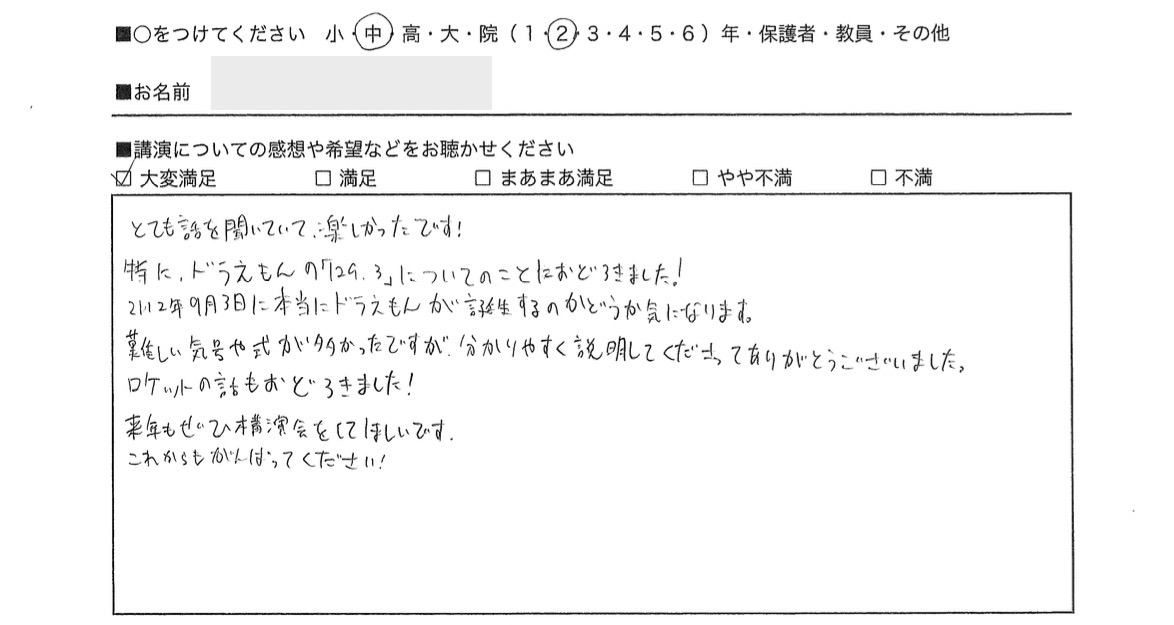 ■○をつけてください 小・中・高・大・院（1・2・3・4・5・6）年・保護者・教員・その他
■お名前
■講演についての感想や希望などをお聴かせください
☑ 大変満足 □ 満足 □ まあまあ満足 □ やや不満 □ 不満
とても話を聞いていて、楽しかったです!
特に、ドラえもんの「129.3」についてのことにおどろきました!
2112年9月3日に本当にドラえもんが誕生するのかどうか気になります。
難しい気号や式が多かったですが、分かりやすく説明してくださってありがとうございました。
ロケットの話もおどろきました!
来年もぜひ構演会をしてほしいです.
これからもがんばってください!